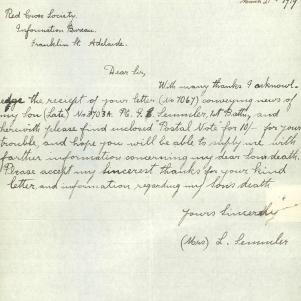 March 21st 1919
Red Cross Society.
Information Bureau.
Franklin St. Adelaide.
Dear Sir,
With many thanks I acknowl-
edge the receipt of your letter (No 7067) conveying news of
my son (Late) No 3703A. Pte. Lemmler, 1st Battn, and
herewith please find inclosed "Postal Note" for 10/- for your
trouble, and hope you will be able to supply me with
farther information concerning my dear son's death.
Please accept my sincerest "thanks" for your kind
letter, and information regarding my son's death
Yours Sincerely
(Mrs) L. Lemmler